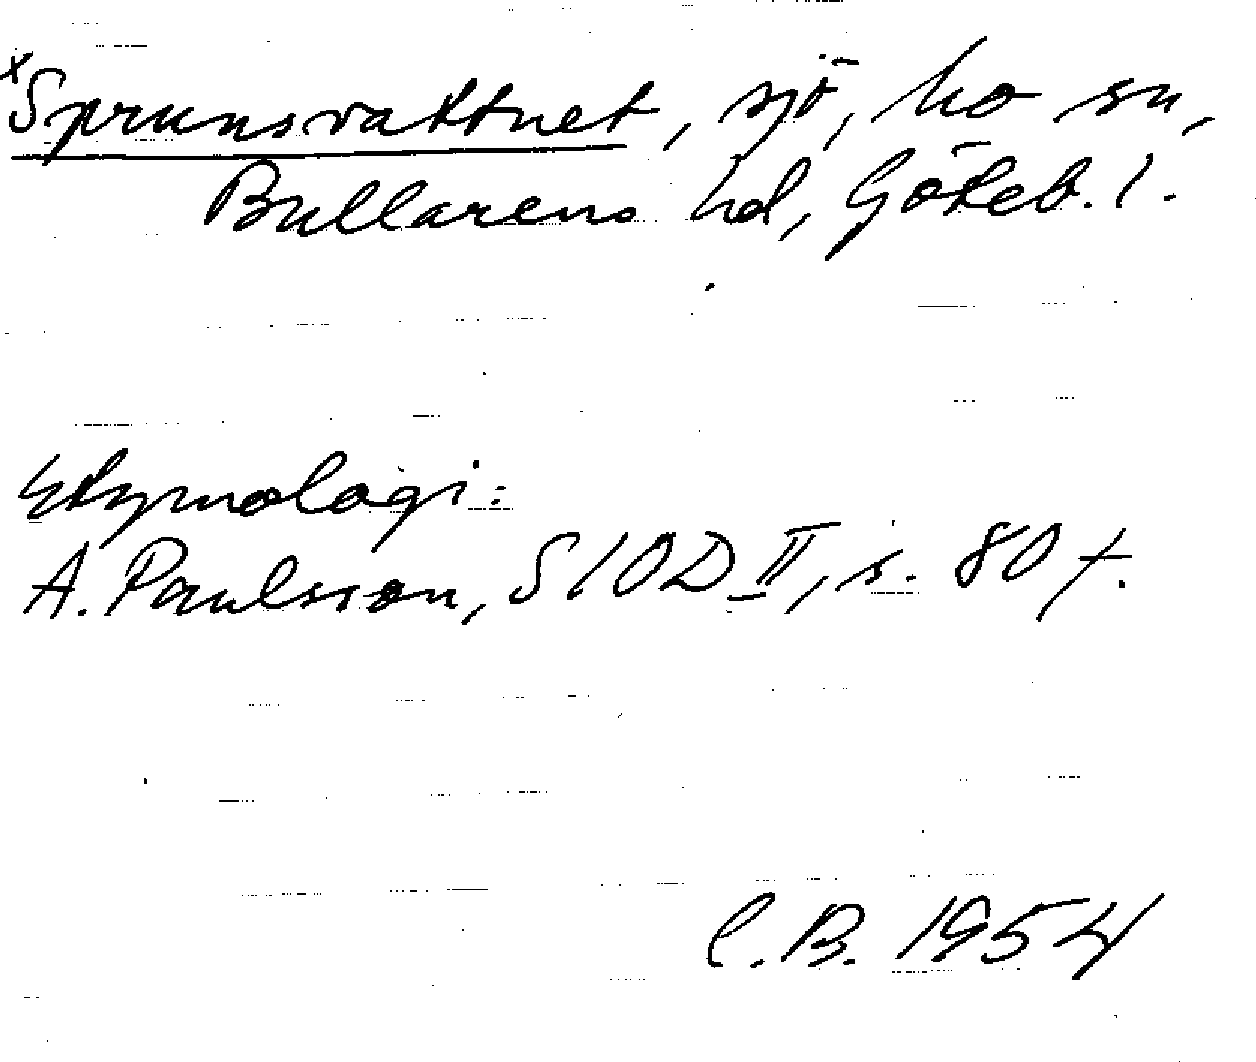 ×Sprunsvattnet, sjö, Mo sn,
Bullarens hd, Göteb. l.
Etymologi:
A. Paulsson, SIOD II, s. 80 f.
C.B. 1954